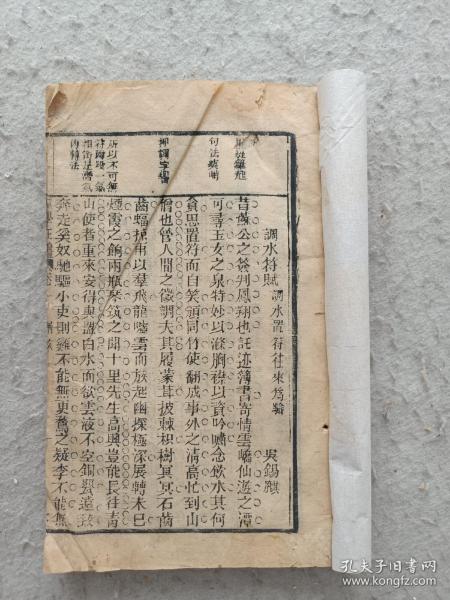 調水符賦 調水置符往來為驗 吳錫麒
昔蘇公之簽判鳳翔也託迹簿書寄情雲嶠仙遊之潭
可尋玉女之泉特妙以滌胸襟以資吟嘯念飲水其何
貪思置符而自笑頭同竹使翻成事外之清高忙到山
僧也管人間之徵調夫其履蒙茸披棘枳樹冥冥石齒
齒蝠拂
以羣飛龍噓雲而族起幽探極深展轉未已
煙霞之
兩瓶琴筑之聞十里先生高興豈能長往青
山使者重來安得與謀白水而欲雲液不空銅
遠致
奔走奚奴馳驅小吏則雖不能無更騖之疑李不能無
句法
押調字
所以不可無
符兩
一氣
相銜是
氣
內轉法
孔夫子旧书网
www.kongfz.com